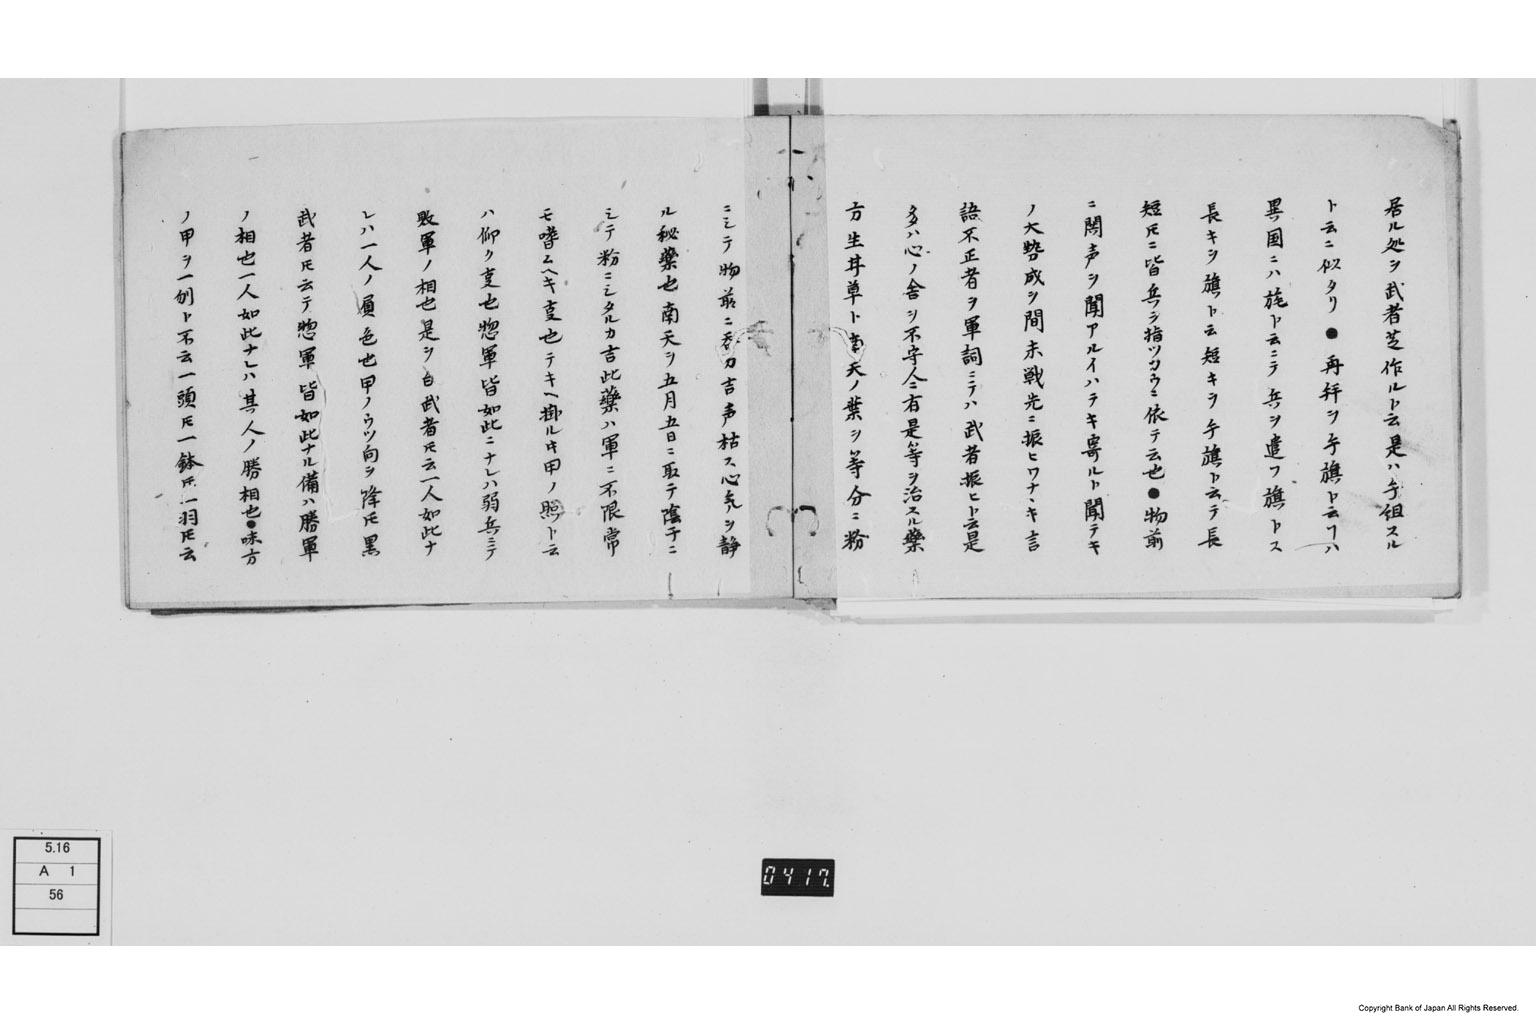 居ル処ヲ武者芝作ルト云是ハ手組スル
ト云ニ似タリ●再拝ヲ手旗ト云フハ
異国ニハ旄ト云ニテ兵ヲ遣フ旗トス
長キヲ旗ト云短キヲ手旗ト云テ長
短ㇳモニ皆兵ヲ指ツカウニ依テ云也●物前
ニ鬨声ヲ聞アルイハテキ寄ルト聞テキ
ノ大勢成ヲ聞未戦先ニ振ヒワナヽキ言
語不正者ヲ軍詞ニテハ武者振ヒト云是
多ハ心ノ舎ヲ不守人ニ有是等ヲ治スル薬
方生井草ト南天ノ葉ヲ等分ニ粉
ニシテ物前ニ呑カ吉声枯ス心気ヲ静
ル秘薬也南天ヲ五月五日ニ取テ陰干ニ
シテ粉ニシタルカ吉此薬ハ軍ニ不限常
モ嗜ムヘキ叓也テキヘ掛ルㇳキ甲ノ照ト云
ハ仰ク叓也惣軍皆如此ニナレハ弱兵ニテ
敗軍ノ相也是ヲ白武者ㇳモ云一人如此ナ
レハ一人ノ負色也甲ノウツ向ヲ降ㇳモ黒
武者ㇳモ云テ惣軍皆如此ナル備ハ勝軍
ノ相也一人如此ナレハ其人ノ勝相也●味方
ノ甲ヲ一刎ト不云一頭ㇳモ一鉢ㇳモ一羽ㇳモ云
5.16
A 1
56
0417
Copyright Bank of Japan All Rights Reserved.